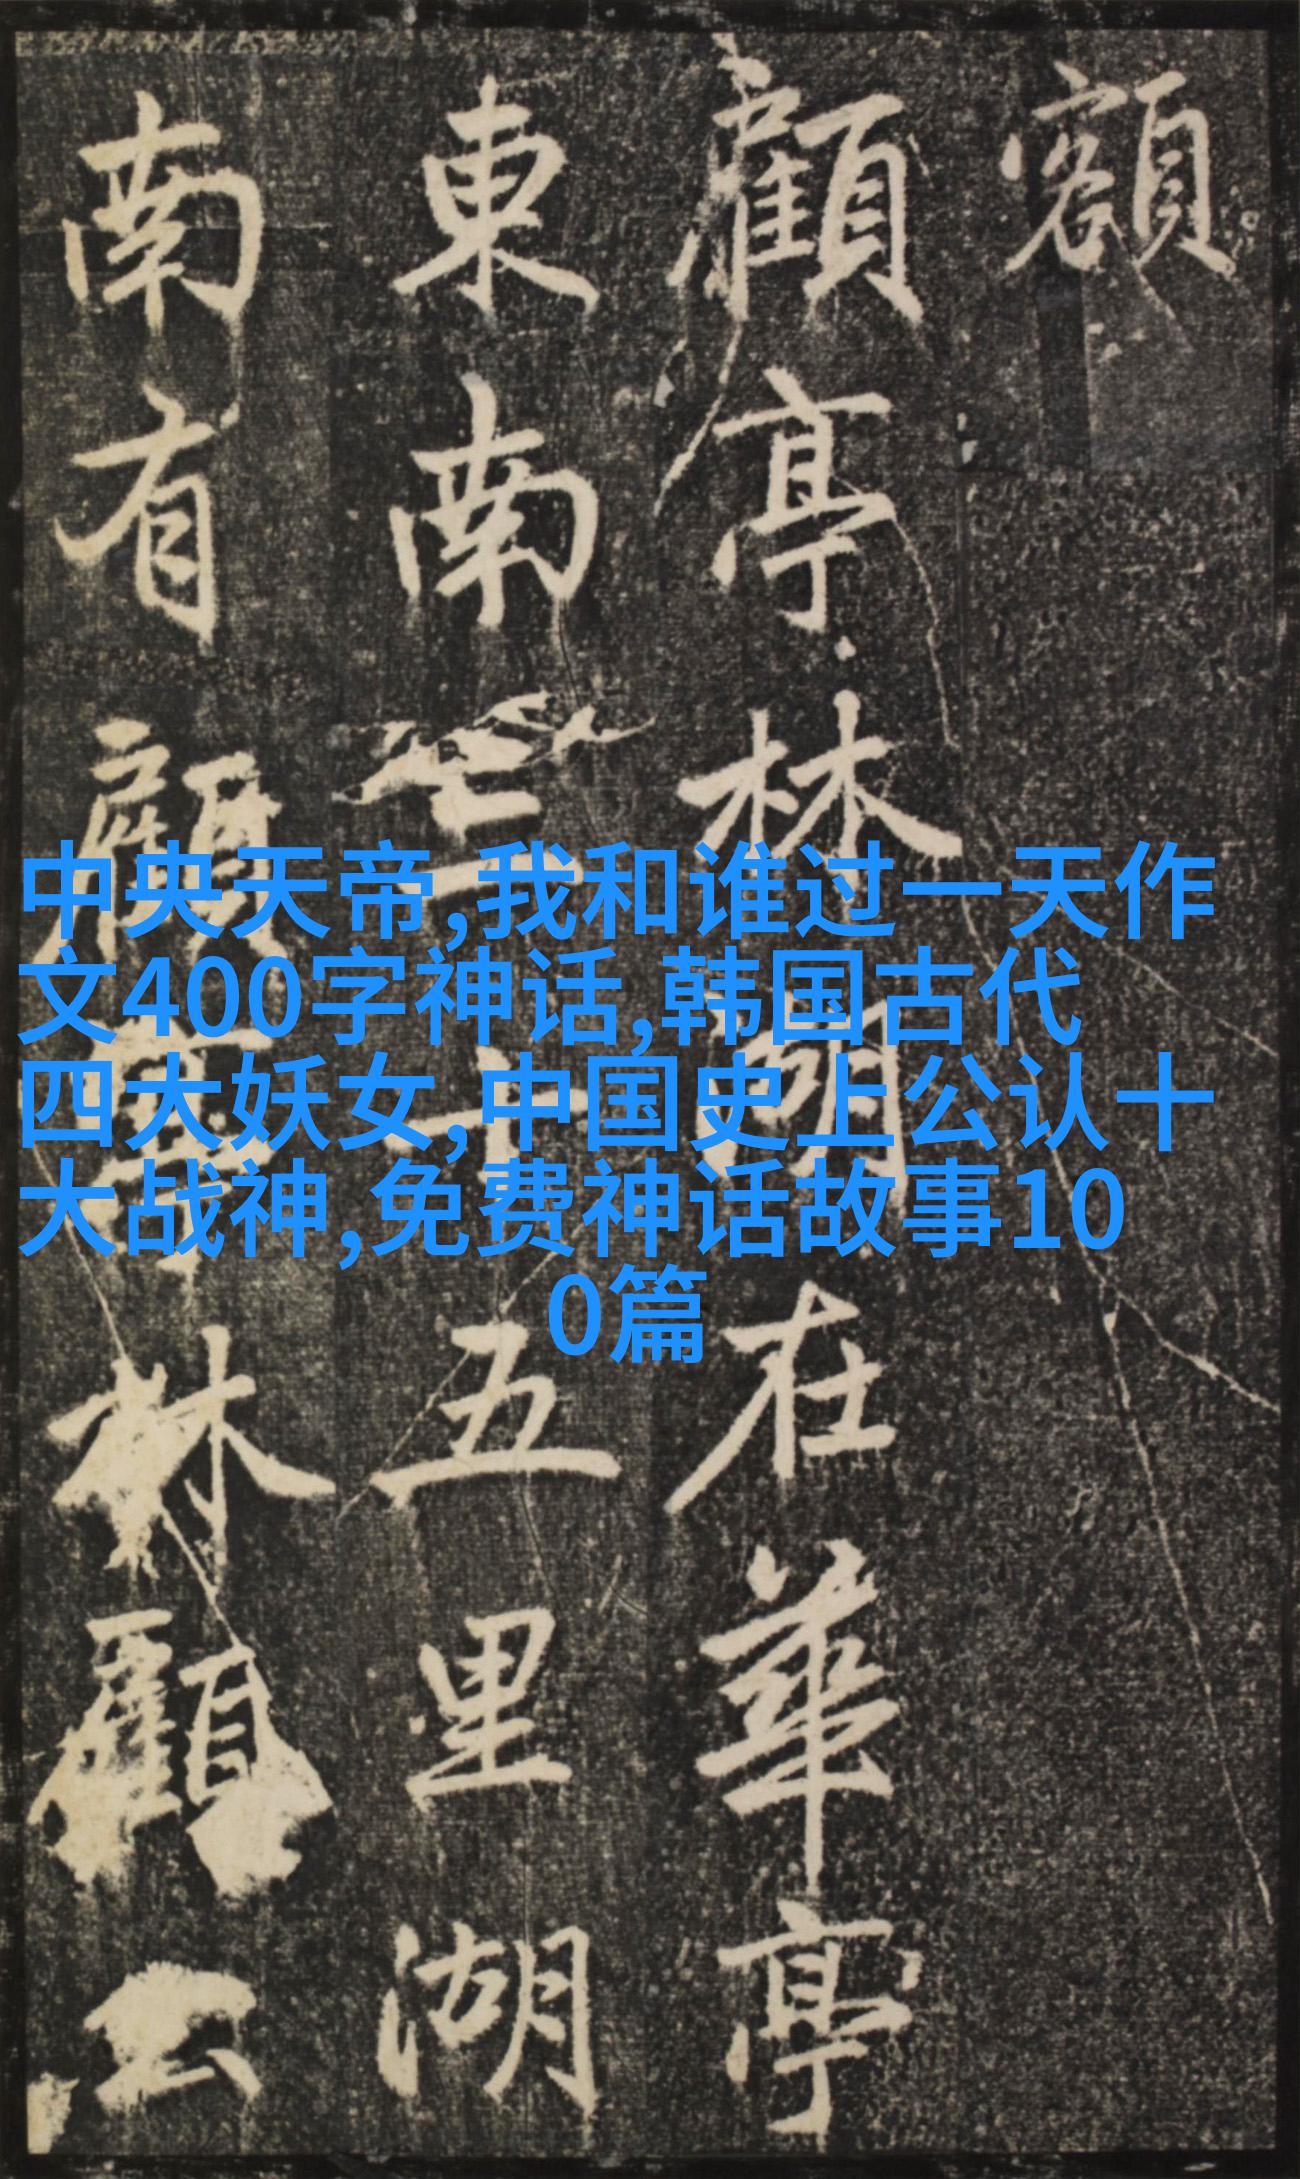 額
顧亭林湖在華亭
東南三十五里湖
南有顧野王林顧亭
中央天帝,我和谁过一天作
文400字神话,韩国古代
四大妖女,中国史上公认十
大战神,免费神话故事10
0篇